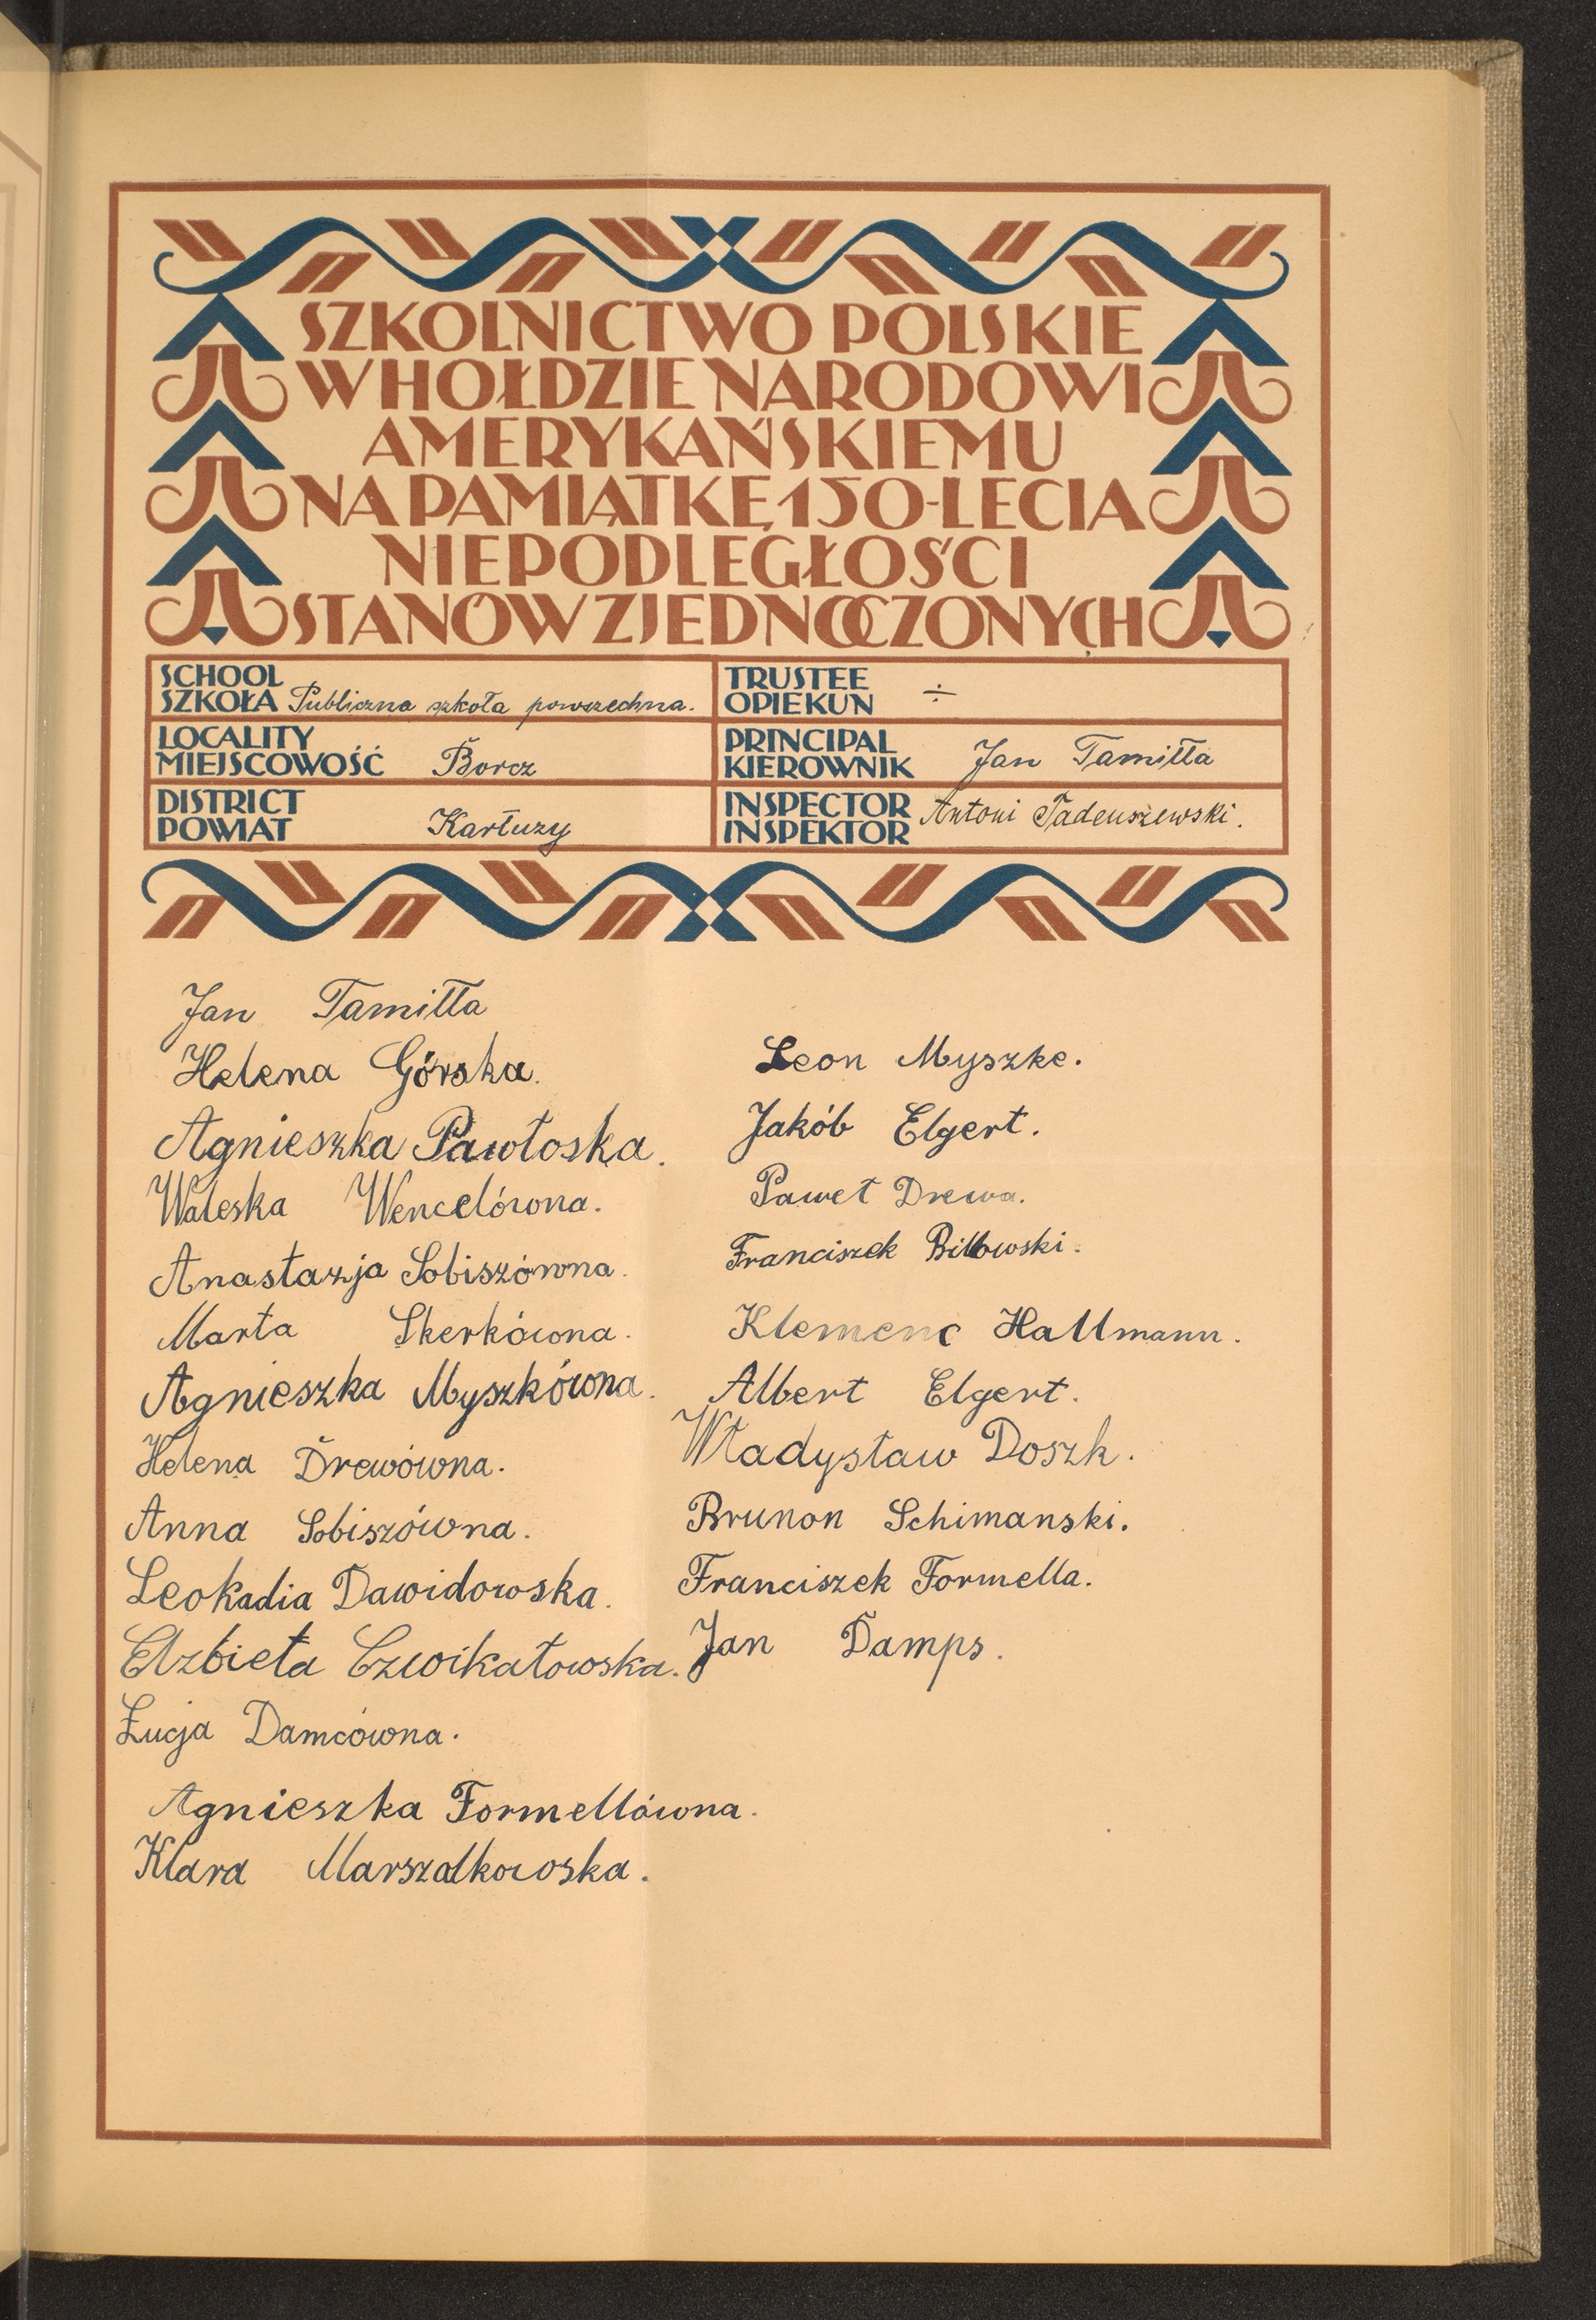 SZKOLNICTWO POLSKIE
W HOŁDZIE NARODOWI
AMERYKAŃSKIEMU
NA PAMIĄTKĘ 150-LECIA
NIEPODLEGŁOŚCI
STANÓW ZJEDNOCZONYCH
SCHOOL
SZKOŁA Publiczna szkoła powszechna.
TRUSTEE
OPIEKUN ÷
LOCALITY
MIEJSCOWOŚĆ Borcz
PRINCIPAL
KIEROWNIK Jan Tamiłła
DISTRICT
POWIAT Kartuzy
INSPECTOR
INSPEKTOR Antoni Tadeuszewski.
Jan Tamiłła
Helena Górska.
Agnieszka Pawłoska.
Waleska Wencelówna.
Anastazja Sobiszówna.
Marta Skerkówna.
Agnieszka Myszkówna.
Helena Drewówna.
Anna Sobiszówna.
Leokadia Dawidowska.
Elzbieta Czwikałowska.
Łucja Damcówna.
Agnieszka Formellówna.
Klara Marszalkowska.
Leon Myszke.
Jakób Elgert.
Paweł Drewa.
Franciszek Bilowski.
Klemenc Hallmann.
Albert Elgert.
Władysław Doszk.
Brunon Schimanski.
Franciszek Formella.
Jan Damps.